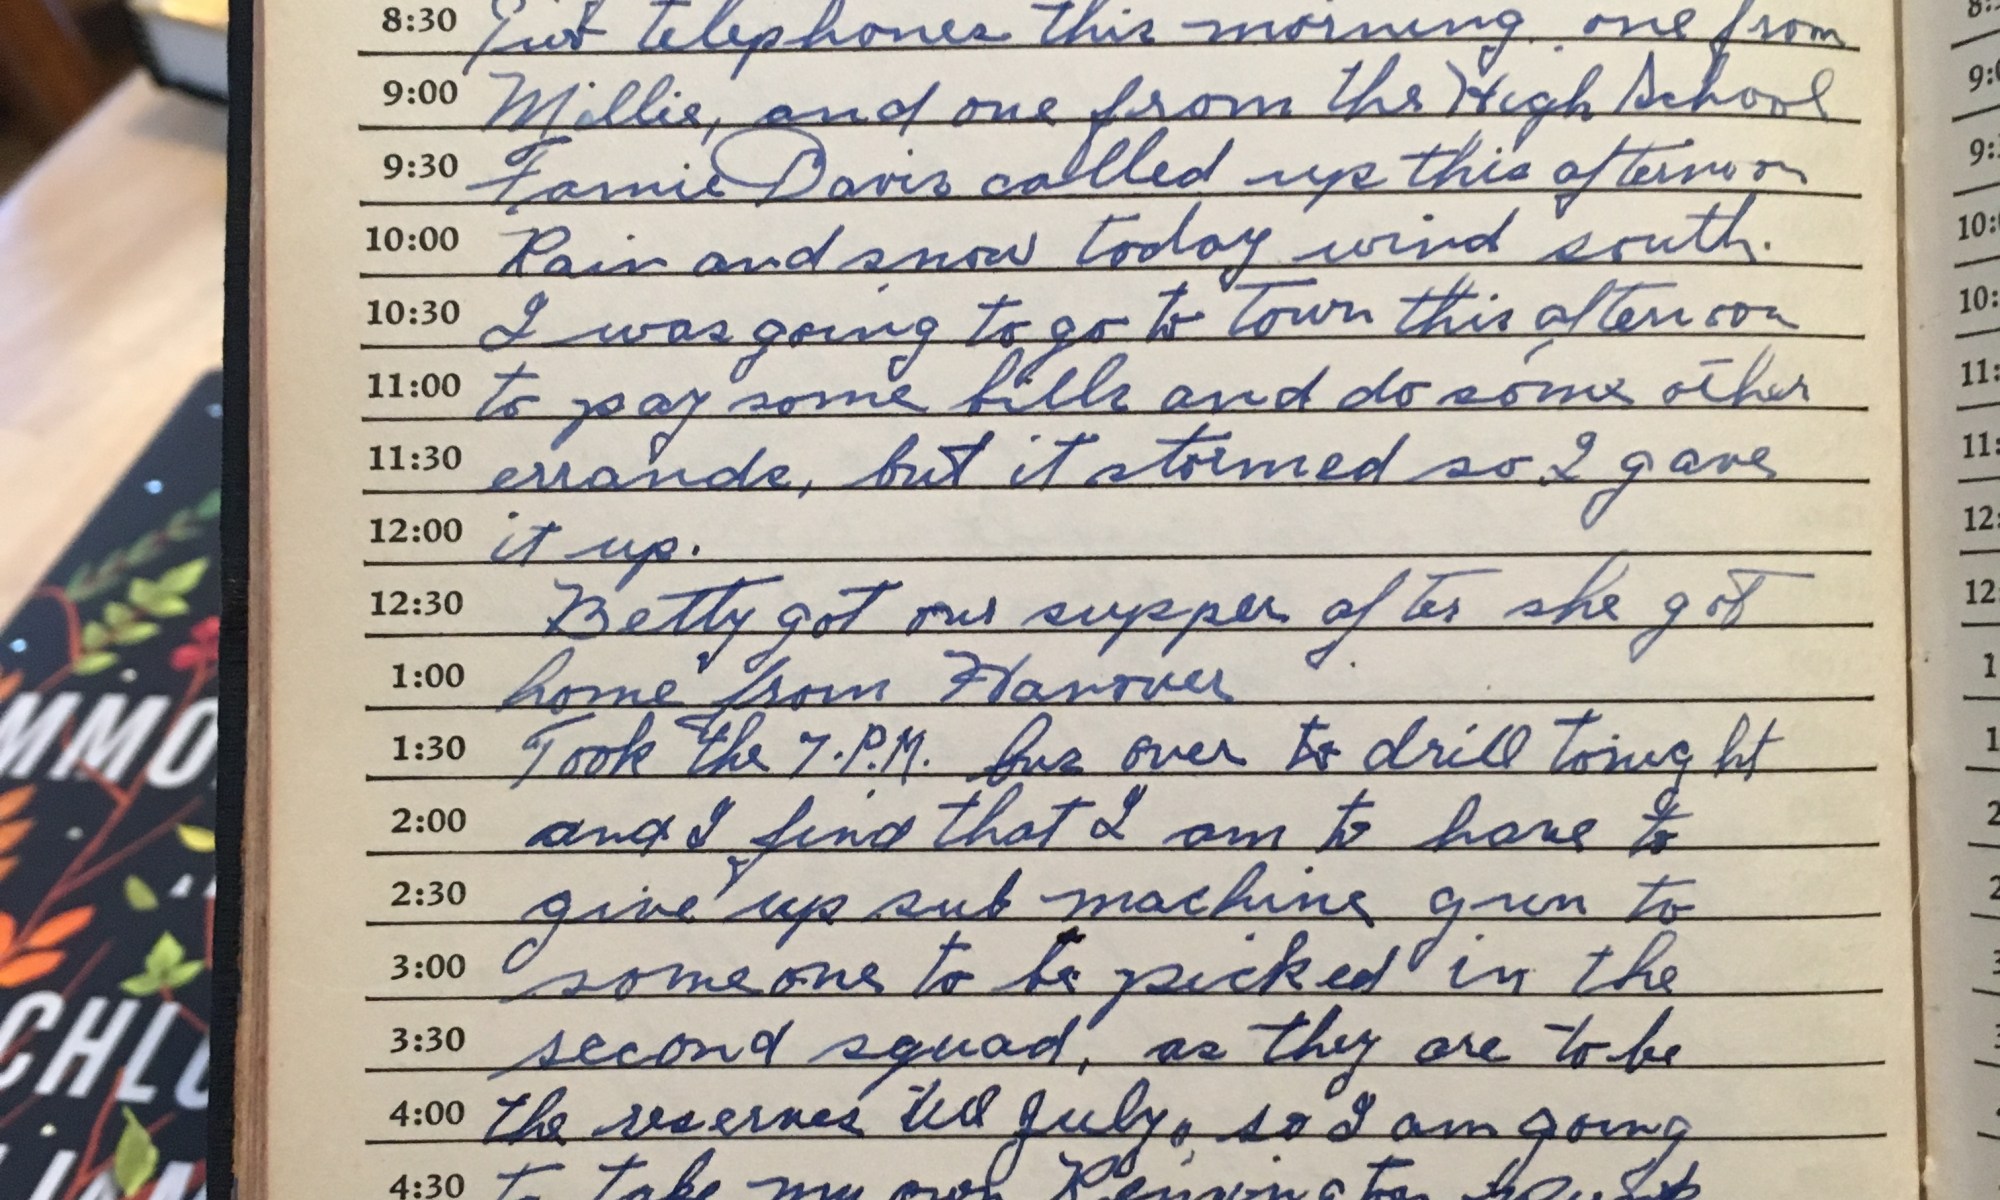 8:30 Just telephones this morning. one from
9:00 Millie, and one from the High School
9:30 Fannie Davis called up this afternoon
10:00 Rain and snow today wind south.
10:30 I was going to go to town this afternoon
11:00 to pay some bills and do some other
11:30 errands, but it stormed so I gave
12:00 it up.
12:30 Betty got our supper after she got
1:00 home from Hanover
1:30 Took the 7.P.M. bus over to drill tonight
2:00 and I find that I am to have to
2:30 give up sub machine gun to
3:00 someone to be picked in the
3:30 second squad, as they are to be
4:00 the reserves till July, so I am going
4:30 to take my own Remington
MMO
CHLO
8:3
9:0
9:3
10:0
10:
11:
11:
12:
12:
1
1
2
2
3
3